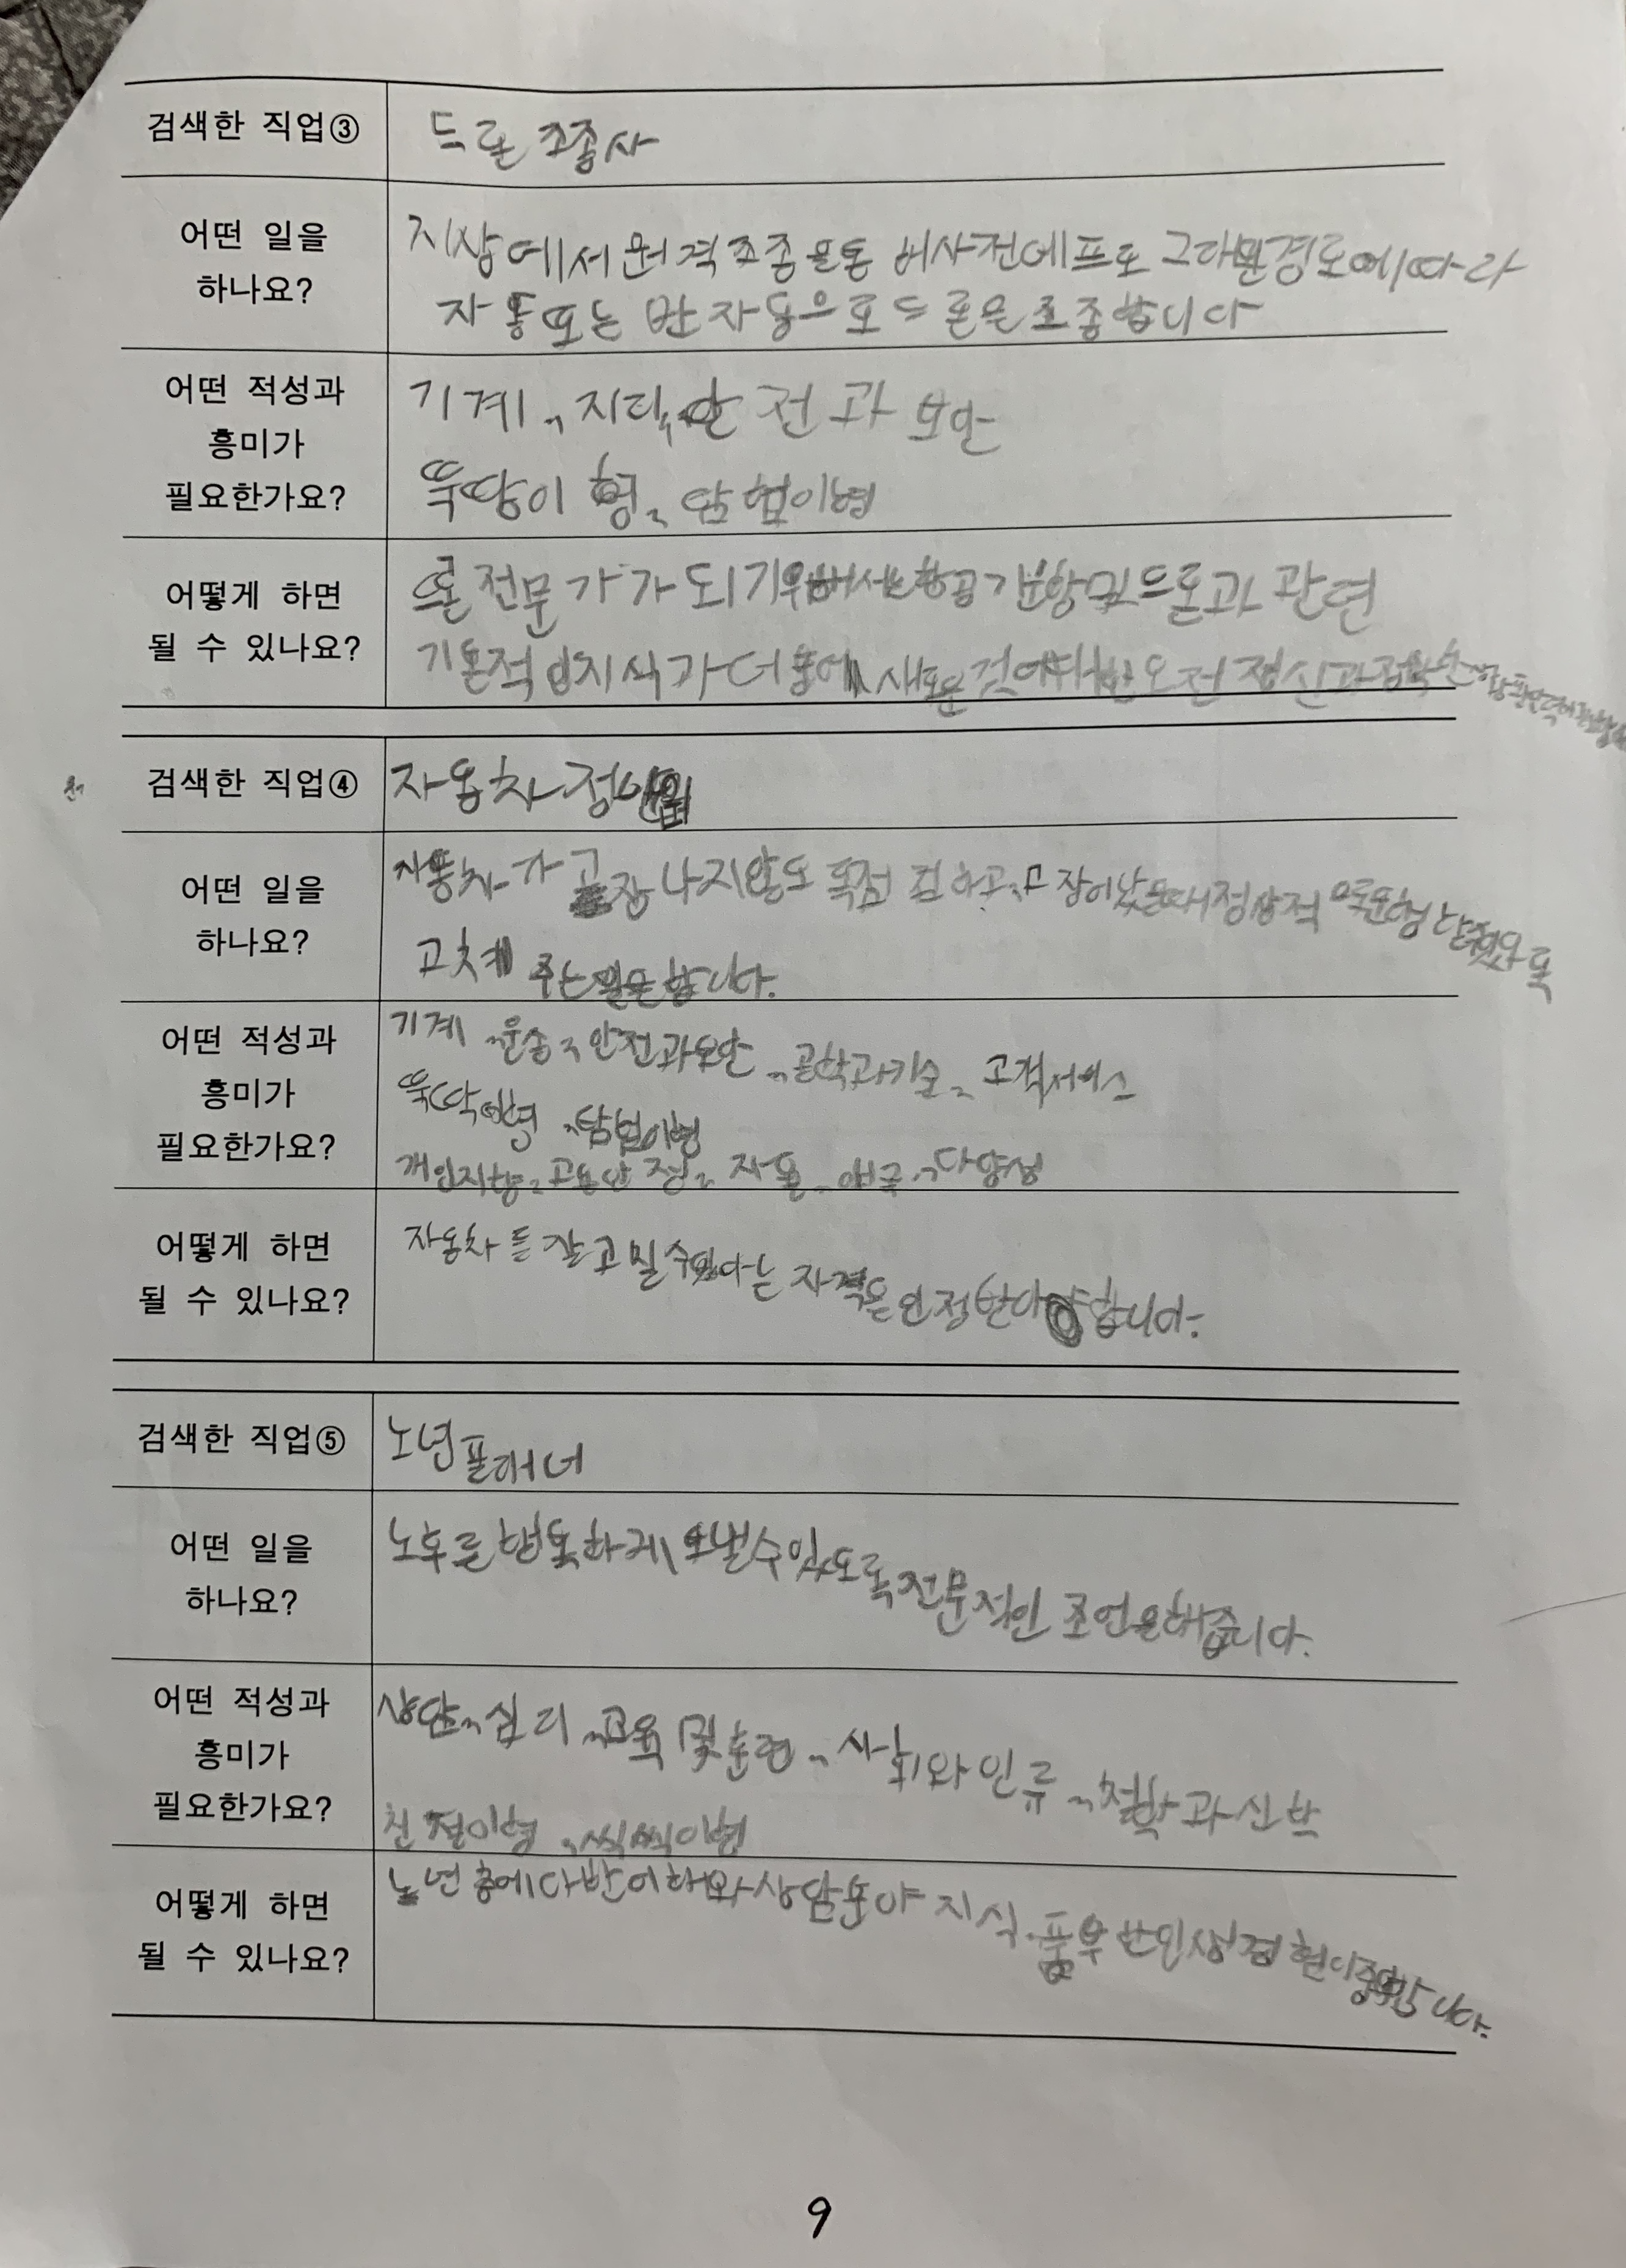 검색한 직업③
드론 조종사
어떤 일을
하나요?
지상에서 원격조종을통 사전에프로그래 경로에따라
자동또는 반자동으로드론을조종합니다
어떤 적성과
흥미가
필요한가요?
기계, 지리, 안전과 보안
뚝딱이형, 탐험이형
어떻게 하면
될 수 있나요?
전문가가 되기위해서는항공기운항및드론과 관련
기본적 지식과더불에 새로운것에 도전정신과
검색한 직업④
자동차정
어떤 일을
하나요?
자동차가 고장나지않도록점검하고, 고장이났을때정상적으로운행
고쳐 주는일을합니다.
어떤 적성과
흥미가
필요한가요?
기계, 운송, 안전과보안, 공학과기술, 고객서비스
뚝딱이형, 탐험이형
개인지향, 고용안정, 자율, 애국, 다양성
어떻게 하면
될 수 있나요?
자동차를 수있다는 자격을인정받아야합니다.
검색한 직업⑤
노년플래너
어떤 일을
하나요?
노후를행복하게보낼수있도록전문적인 조언을해줍니다.
어떤 적성과
흥미가
필요한가요?
상담, 심리, 교육및훈련, 사회와인류, 철학과신학
친절이형, 씩씩이형
어떻게 하면
될 수 있나요?
노년층에 이해와상담분야지식, 풍부한인생경험이
9